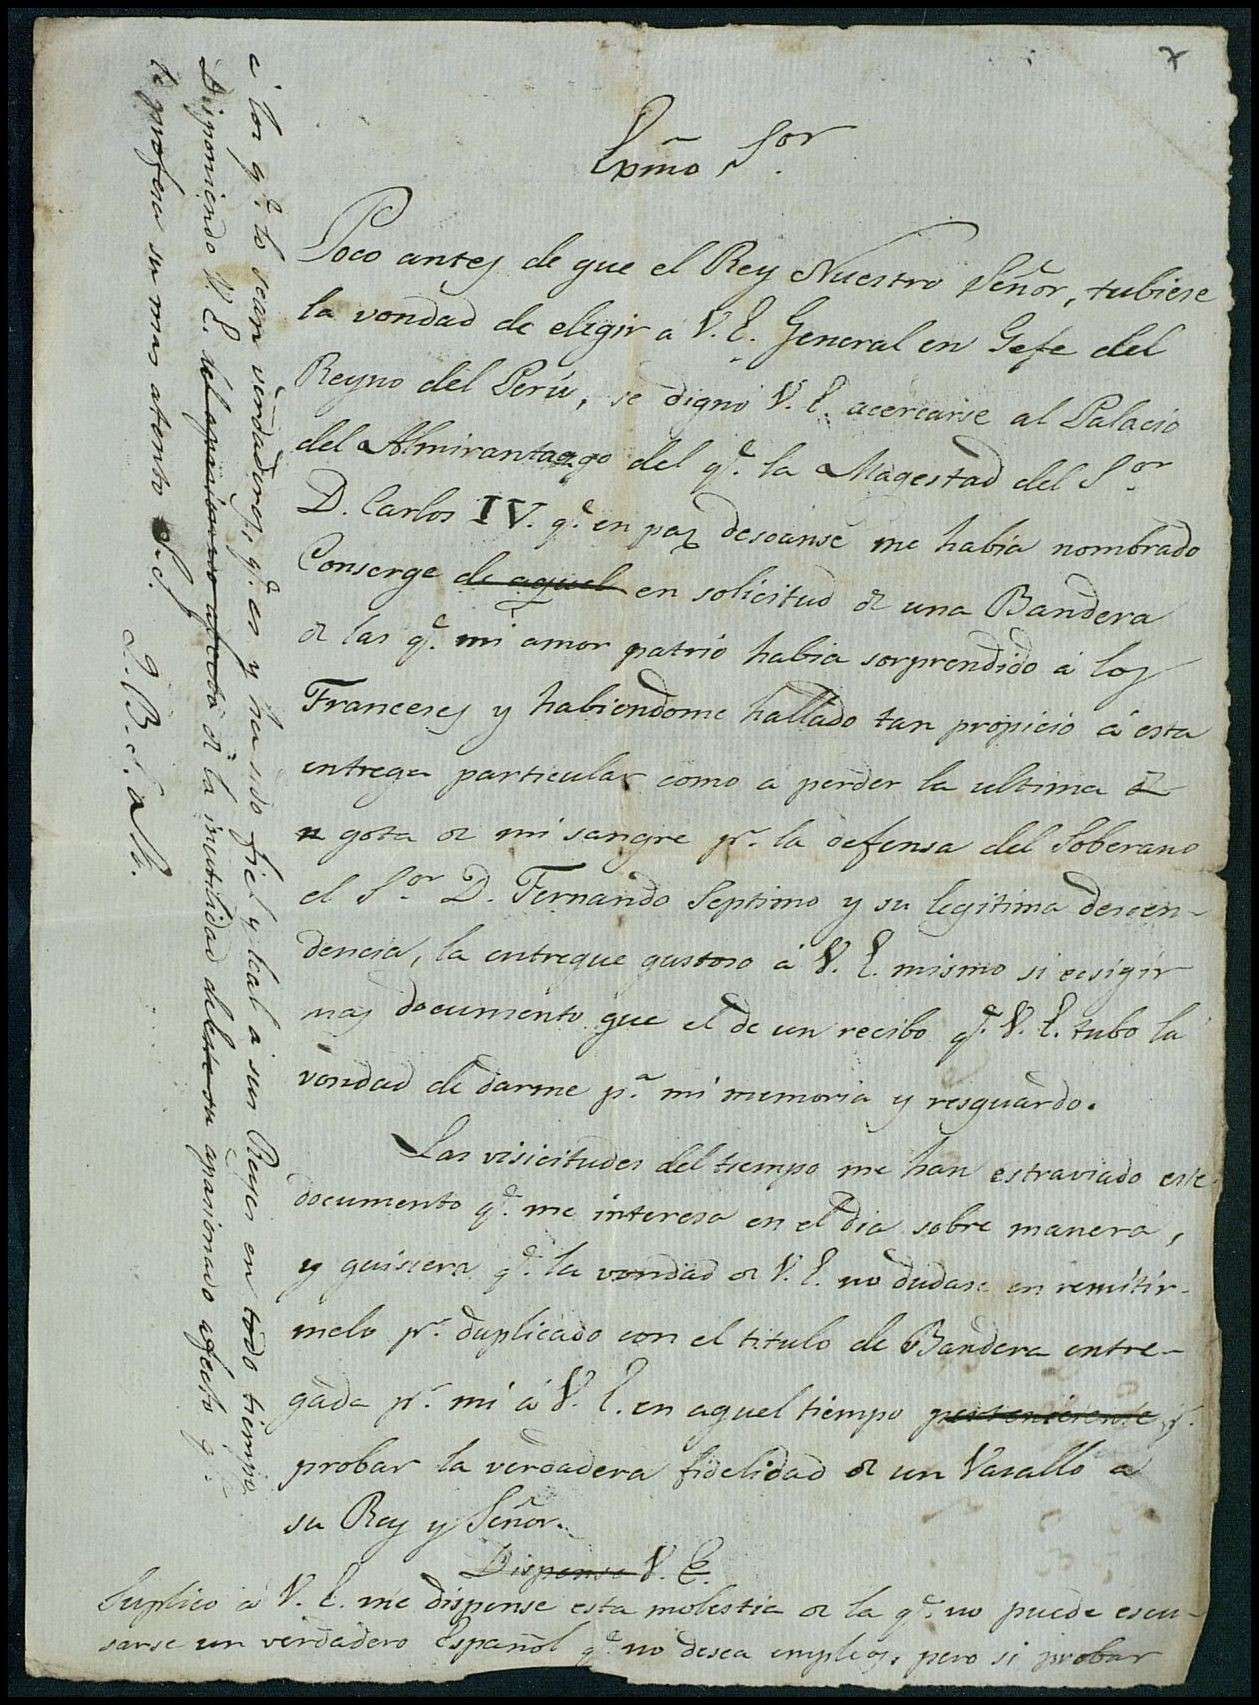 7
Exmõ Sor.
Poco antes de que el Rey Nuestro Señor, tubiese
la vondad de elegir a V. E. General en Gefe del
Reyno del Perú, se digno V. E. acercarse al Palacio
del Almirantazgo del qe. la Magestad del Sor.
D. Carlos IV. qe. en paz descanse me había nombrado
Conserge de aquel en solicitud de una Bandera
de las qe. mi amor patrio habia sorprendido á los
Franceses y habiendome hallado tan propicio á esta
entrega particular como a perder la ultima
gota de mi sangre pr. la defensa del Soberano
el Sor. D. Fernando Septimo y su legitima descen-
dencia, la entregue gustoso á V. E. mismo si ecsigir
mas documento que el de un recibo qe. V. E. tubo la
vondad de darme pa. mi memoria y resguardo.
Las visicitudes del tiempo me han estraviado este
documento qe. me interesa en el dia sobre manera,
y quisiera qe. la vondad de V. E. no dudase en remitir-
melo pr. duplicado con el titulo de Bandera entre-
gada pr. mi á V. E. en aquel tiempo perteneciente
probar la verdadera fidelidad de un Vasallo a
su Rey y Señor.
Dispense V. E.
Suplico á V. E. me dispense esta molestia de la qe. no puede escu-
sarse un verdadero Español qe. no desea empleos, pero si probar
á los qe. lo sean verdaderos, qe. es y ha sido fiel y leal a sus Reyes en todo tiempo
Disponiendo V. E. del apasionado afecto de la inutilidad de este su apasionado afecto q.
le profesa su mas atento S. S.
Q. B. S. M.